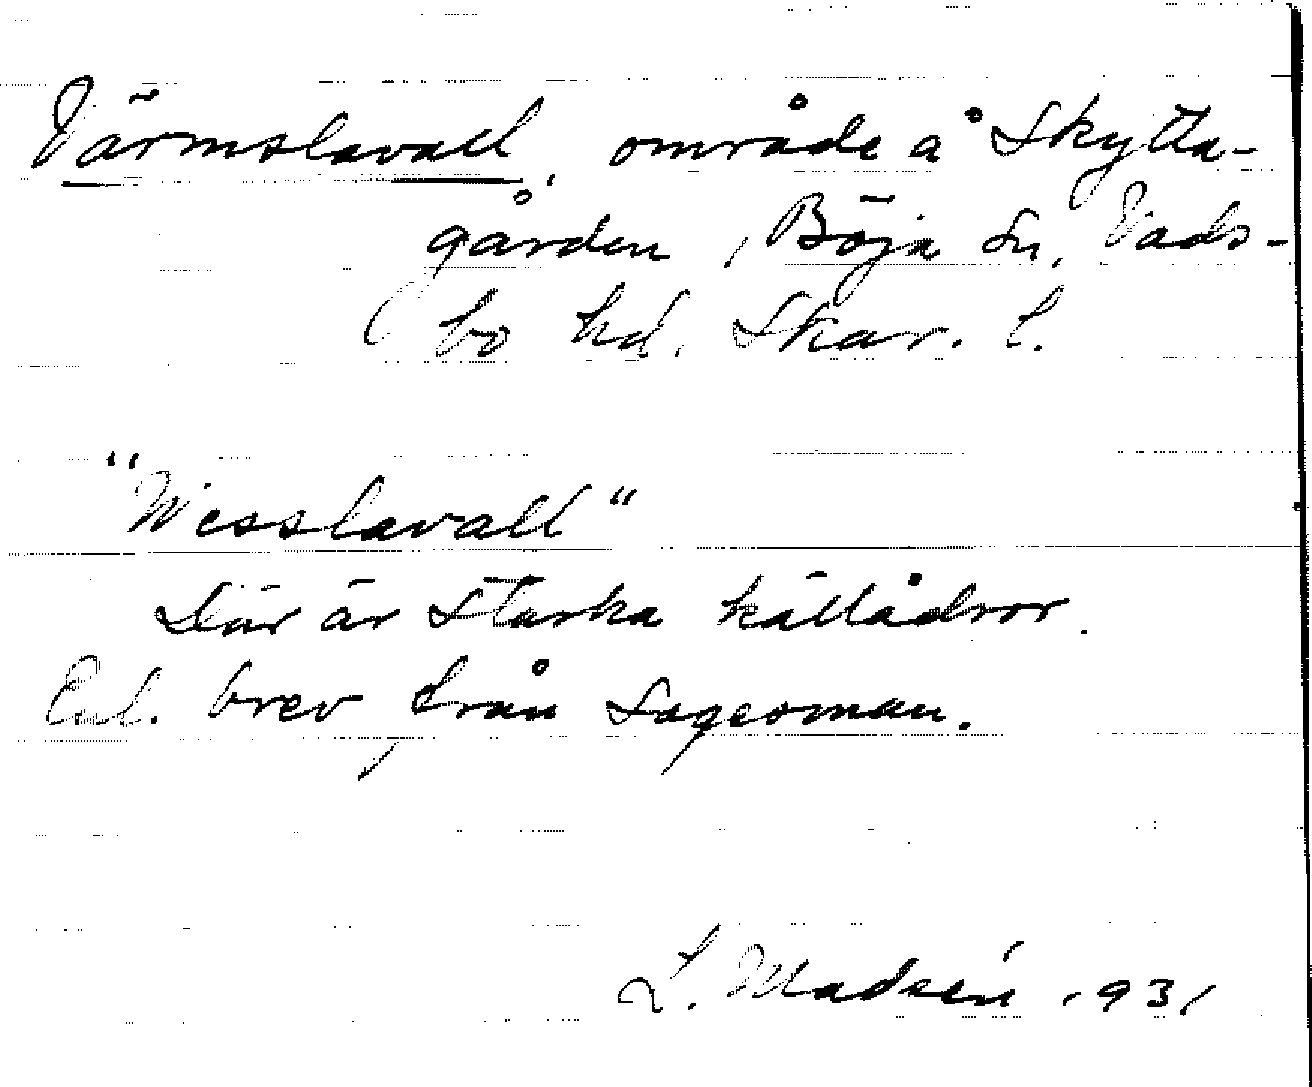 Värmslavall, område å Skytta-
gården, Böja sn, Vads-
bo hd. Skar. l.
"Wesslavall"
Där är starka källådror.
Enl. brev från sagesman.
L. Madsén 1931